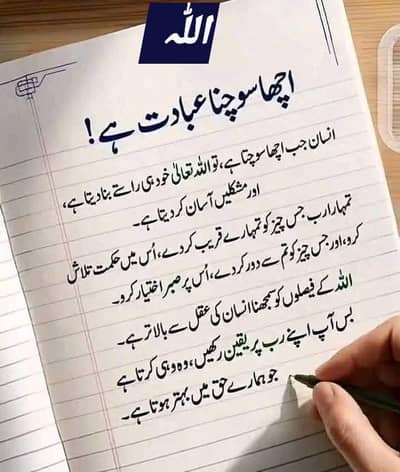 اللہ
اچھا سوچنا عبادت ہے!
انسان جب اچھا سوچتا ہے، تو اللہ تعالیٰ خود ہی راستے بنا دیتا ہے،
اور مشکلیں آسان کر دیتا ہے۔
تمہارا رب جس چیز کو تمہارے قریب کر دے، اُس میں حکمت تلاش
کرو، اور جس چیز کو تم سے دور کر دے، اُس پر صبر اختیار کرو۔
اللہ کے فیصلوں کو سمجھنا انسان کی عقل سے بالاتر ہے۔
بس آپ اپنے رب پر یقین رکھیں، وہ وہی کرتا ہے
جو ہمارے حق میں بہتر ہوتا ہے۔